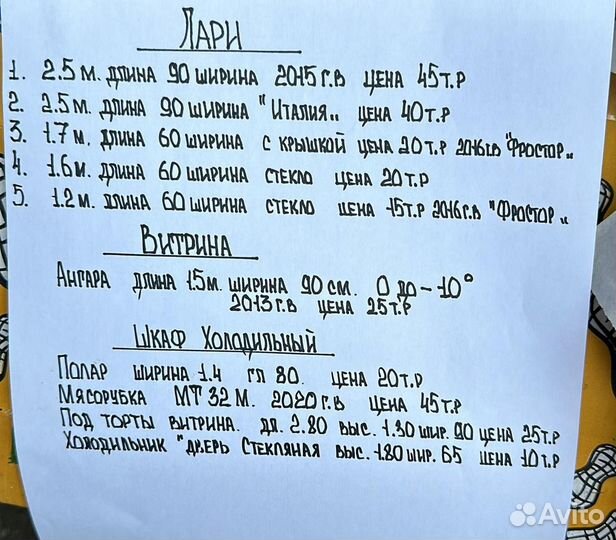 Лари
1. 2.5 м. длина 90 ширина 2015 г.в цена 45 т.р
2. 2.5 м. длина 90 ширина "Италия" цена 40 т.р
3. 1.7 м. длина 60 ширина с крышкой цена 20 т.р 2016 г.в "Фростор"
4. 1.6 м. длина 60 ширина стекло цена 20 т.р
5. 1.2 м. длина 60 ширина стекло цена 15 т.р 2016 г.в "Фростор"
Витрина
Ангара длина 1.5 м. ширина 90 см. 0 до -10°
2013 г.в цена 25 т.р
Шкаф Холодильный
Полар ширина 1.4 гл 80. цена 20 т.р
Мясорубка МТ 32 М. 2020 г.в цена 45 т.р
Под торты витрина. дл. 2.80 выс. 1.30 шир. 90 цена 25 т.р
Холодильник "дверь стекляная выс. 1.80 шир. 65 цена 10 т.р
Avito